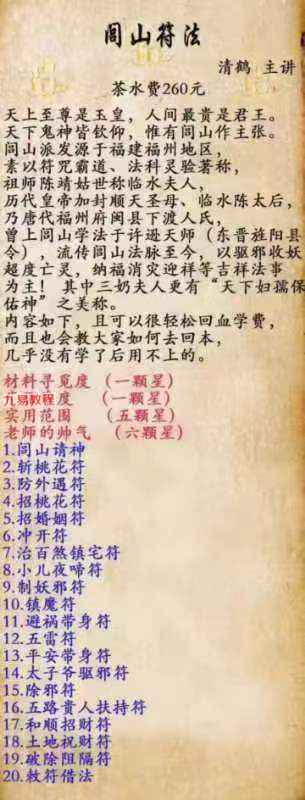 闾山符法
清鹤 主讲
茶水费260元
天上至尊是玉皇，人间最贵是君王。
天下鬼神皆钦仰，惟有闾山作主张。
闾山派发源于福建福州地区，
素以符咒霸道、法科灵验著称，
祖师陈靖姑世称临水夫人，
历代皇帝加封顺天圣母、临水陈太后，
乃唐代福州府闽县下渡人氏，
曾上闾山学法于许逊天师（东晋旌阳县
令），流传闾山法脉至今，以驱邪收妖
超度亡灵，纳福消灾迎祥等吉祥法事
为主！ 其中三奶夫人更有“天下妇孺保
佑神”之美称。
内容如下，且可以很轻松回血学费，
而且也会教大家如何去回本，
几乎没有学了后用不上的。
材料寻觅度 （一颗星）
九易教程度 （一颗星）
实用范围 （五颗星）
老师的帅气 （六颗星）
1.闾山请神
2.斩桃花符
3.防外遇符
4.招桃花符
5.招婚姻符
6.冲开符
7.治百煞镇宅符
8.小儿夜啼符
9.制妖邪符
10.镇魔符
11.避祸带身符
12.五雷符
13.平安带身符
14.太子爷驱邪符
15.除邪符
16.五路贵人扶持符
17.和顺招财符
18.土地祝财符
19.破除阻隔符
20.敕符借法